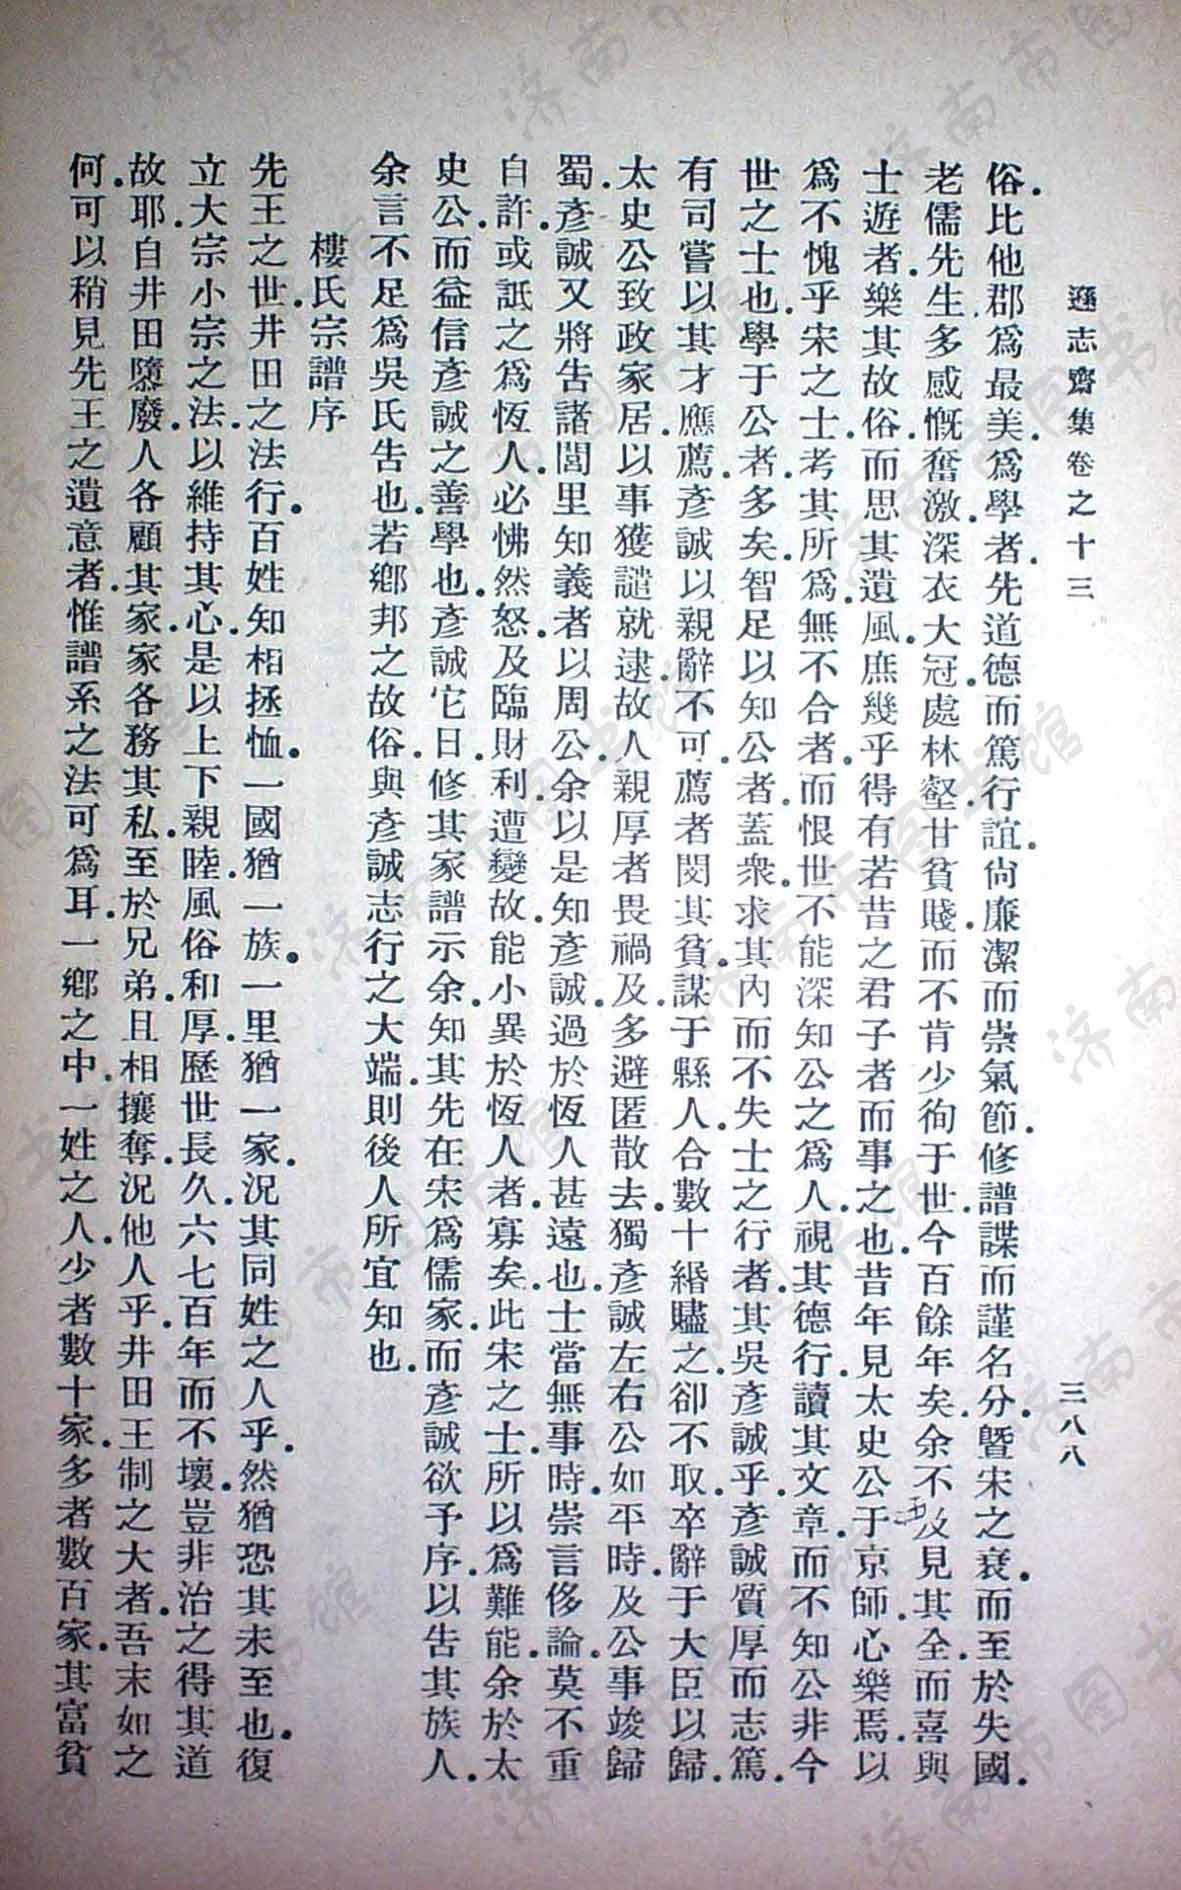 遜志齋集卷之十三
三八八
俗.比他郡爲最美.爲學者.先道德而篤行誼.尙廉潔而崇氣節.修譜諜而謹名分.曁宋之衰.而至於失國.
老儒先生.多感慨奮激.深衣大冠.處林壑.甘貧賤.而不肯少徇于世.今百餘年矣.余不及見其全.而喜與
士遊者.樂其故俗.而思其遺風.庶幾乎得有若昔之君子者而事之也.昔年見太史公于京師.心樂焉.以
爲不愧乎宋之士.考其所爲.無不合者.而恨世不能深知公之爲人.視其德行.讀其文章.而不知公非今
世之士也.學于公者.多矣.智足以知公者.蓋衆.求其內而不失士之行者.其吳彥誠乎.彥誠質厚而志篤.
有司嘗以其才應薦.彥誠以親辭不可.薦者閔其貧.謀于縣人.合數十緡贐之.卻不取.卒辭于大臣以歸.
太史公致政家居.以事獲譴就逮.故人親厚者畏禍及.多避匿散去.獨彥誠左右公如平時.及公事竣歸
蜀.彥誠又將告諸閭里知義者以周公.余以是知彥誠.過於恆人甚遠也.士當無事時.崇言侈論.莫不重
自許.或詆之爲恆人.必怫然怒.及臨財利.遭變故.能小異於恆人者.寡矣.此宋之士.所以爲難能.余於太
史公.而益信彥誠之善學也.彥誠它日.修其家譜示余.知其先在宋爲儒家.而彥誠欲予序.以告其族人.
余言不足爲吳氏告也.若鄉邦之故俗.與彥誠志行之大端.則後人所宜知也.
樓氏宗譜序
先王之世.井田之法行.百姓知相拯恤.一國猶一族.一里猶一家.況其同姓之人乎.然猶恐其未至也.復
立大宗小宗之法.以維持其心.是以上下親睦.風俗和厚.歷世長久.六七百年而不壞.豈非治之得其道
故耶.自井田隳廢.人各顧其家.家各務其私.至於兄弟.且相攘奪.況他人乎.井田王制之大者.吾末如之
何.可以稍見先王之遺意者.惟譜系之法可爲耳.一鄉之中.一姓之人.少者數十家.多者數百家.其富貧